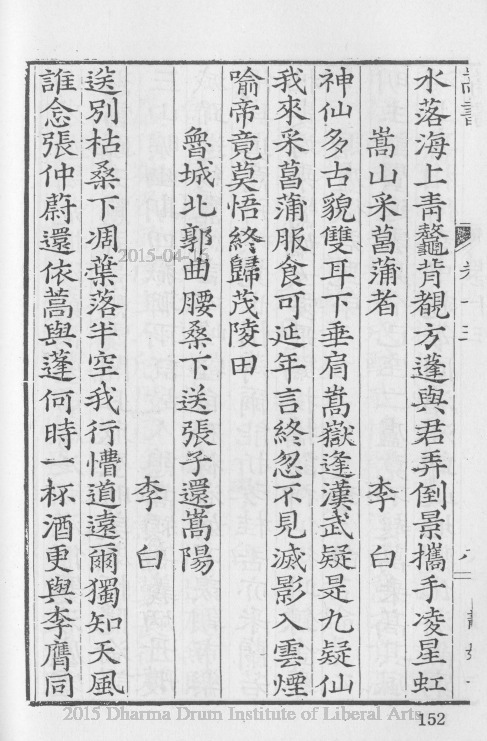 水落海上青鼇背覩方蓬與君弄倒景攜手凌星虹
嵩山采菖蒲者 李白
神仙多古貌雙耳下垂肩嵩嶽逢漢武疑是九疑仙
我來采菖蒲服食可延年言終忽不見滅影入雲煙
喻帝竟莫悟終歸茂陵田
魯城北郭曲腰桑下送張子還嵩陽
李白
送別枯桑下凋葉落半空我行懵道遠爾獨知天風
誰念張仲蔚還依蒿與蓬何時一杯酒更與李膺同
152
2015-04-15
2015 Dharma Drum Institute of Liberal Arts